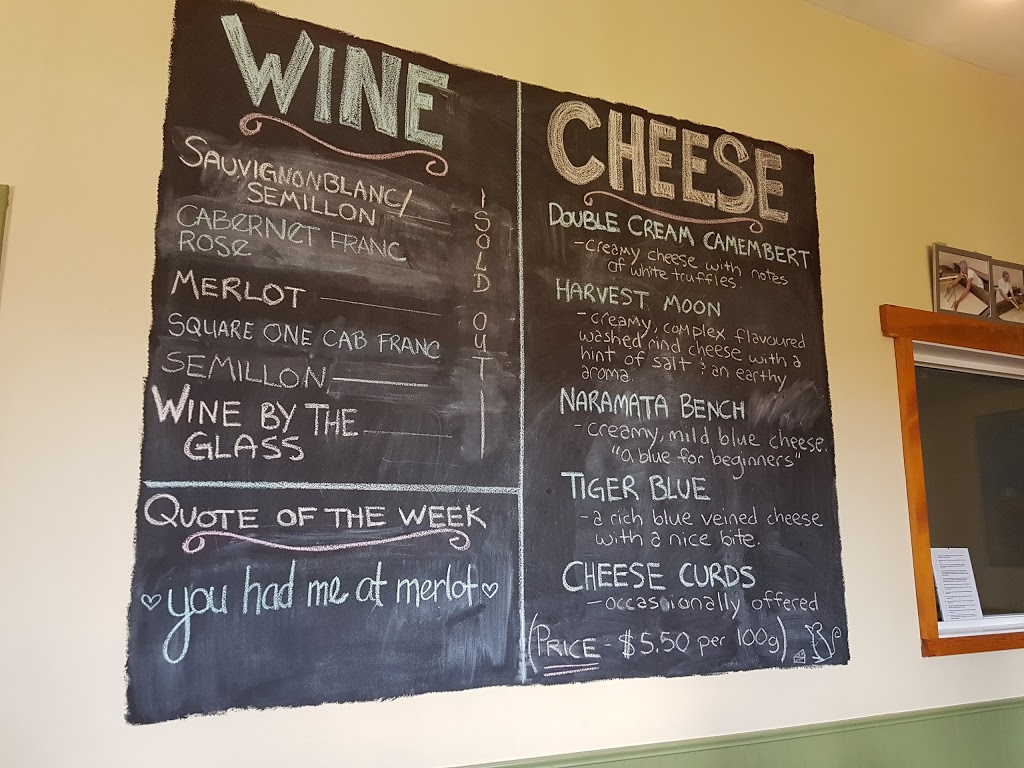 WINE
SAUVIGNON BLANC/
SEMILLON
CABERNET FRANC
ROSE
MERLOT
SQUARE ONE CAB FRANC
SEMILLON
WINE BY THE
GLASS
SOLD OUT
QUOTE OF THE WEEK
you had me at merlot
CHEESE
DOUBLE CREAM CAMEMBERT
- creamy cheese with notes
of white truffles.
HARVEST MOON
- creamy, complex flavoured
washed rind cheese with a
hint of salt & an earthy
aroma.
NARAMATA BENCH
- creamy, mild blue cheese.
"a blue for beginners"
TIGER BLUE
- a rich blue veined cheese
with a nice bite.
CHEESE CURDS
- occassionally offered
(PRICE - $5.50 per 100g)